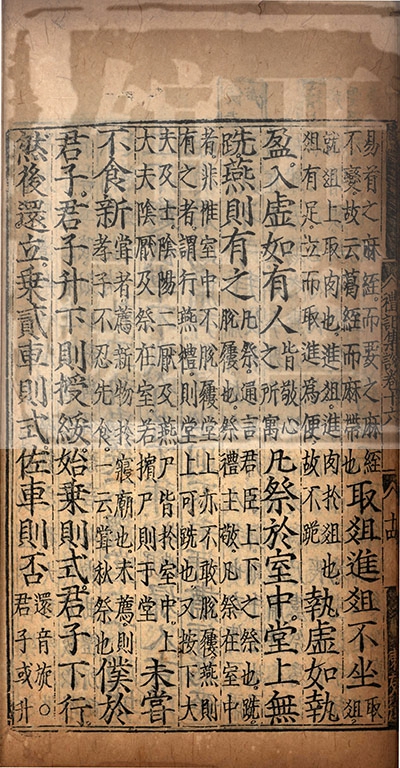 易首之麻絰而要之麻絰
不變故云葛絰而麻帶也
取俎進俎不坐
取
俎
就俎上取肉也進俎進肉於俎也
俎有足立而取進爲便故不跪
執虛如執
盈入虛如有人
皆敬心
之所寓
凡祭於室中堂上無
跣燕則有之
凡祭通言君臣上下之祭也跣
脫屨也祭禮主敬凡祭在室中
者非惟室中不脫屨堂上亦不敢脫屨燕則
有之者謂行燕禮則堂上可跣也又按下大
夫及士陰陽二厭及燕尸皆於室中上
大夫陰厭及祭在室若擯尸則于堂
未嘗
不食新
嘗者薦新物於寢廟也未薦則
孝子不忍先食一云嘗秋祭也
僕於
君子君子升下則授綏始乘則式君子下行
然後還立乘貳車則式佐車則否
還音旋○
君子或升
禮記集說卷十六
十四